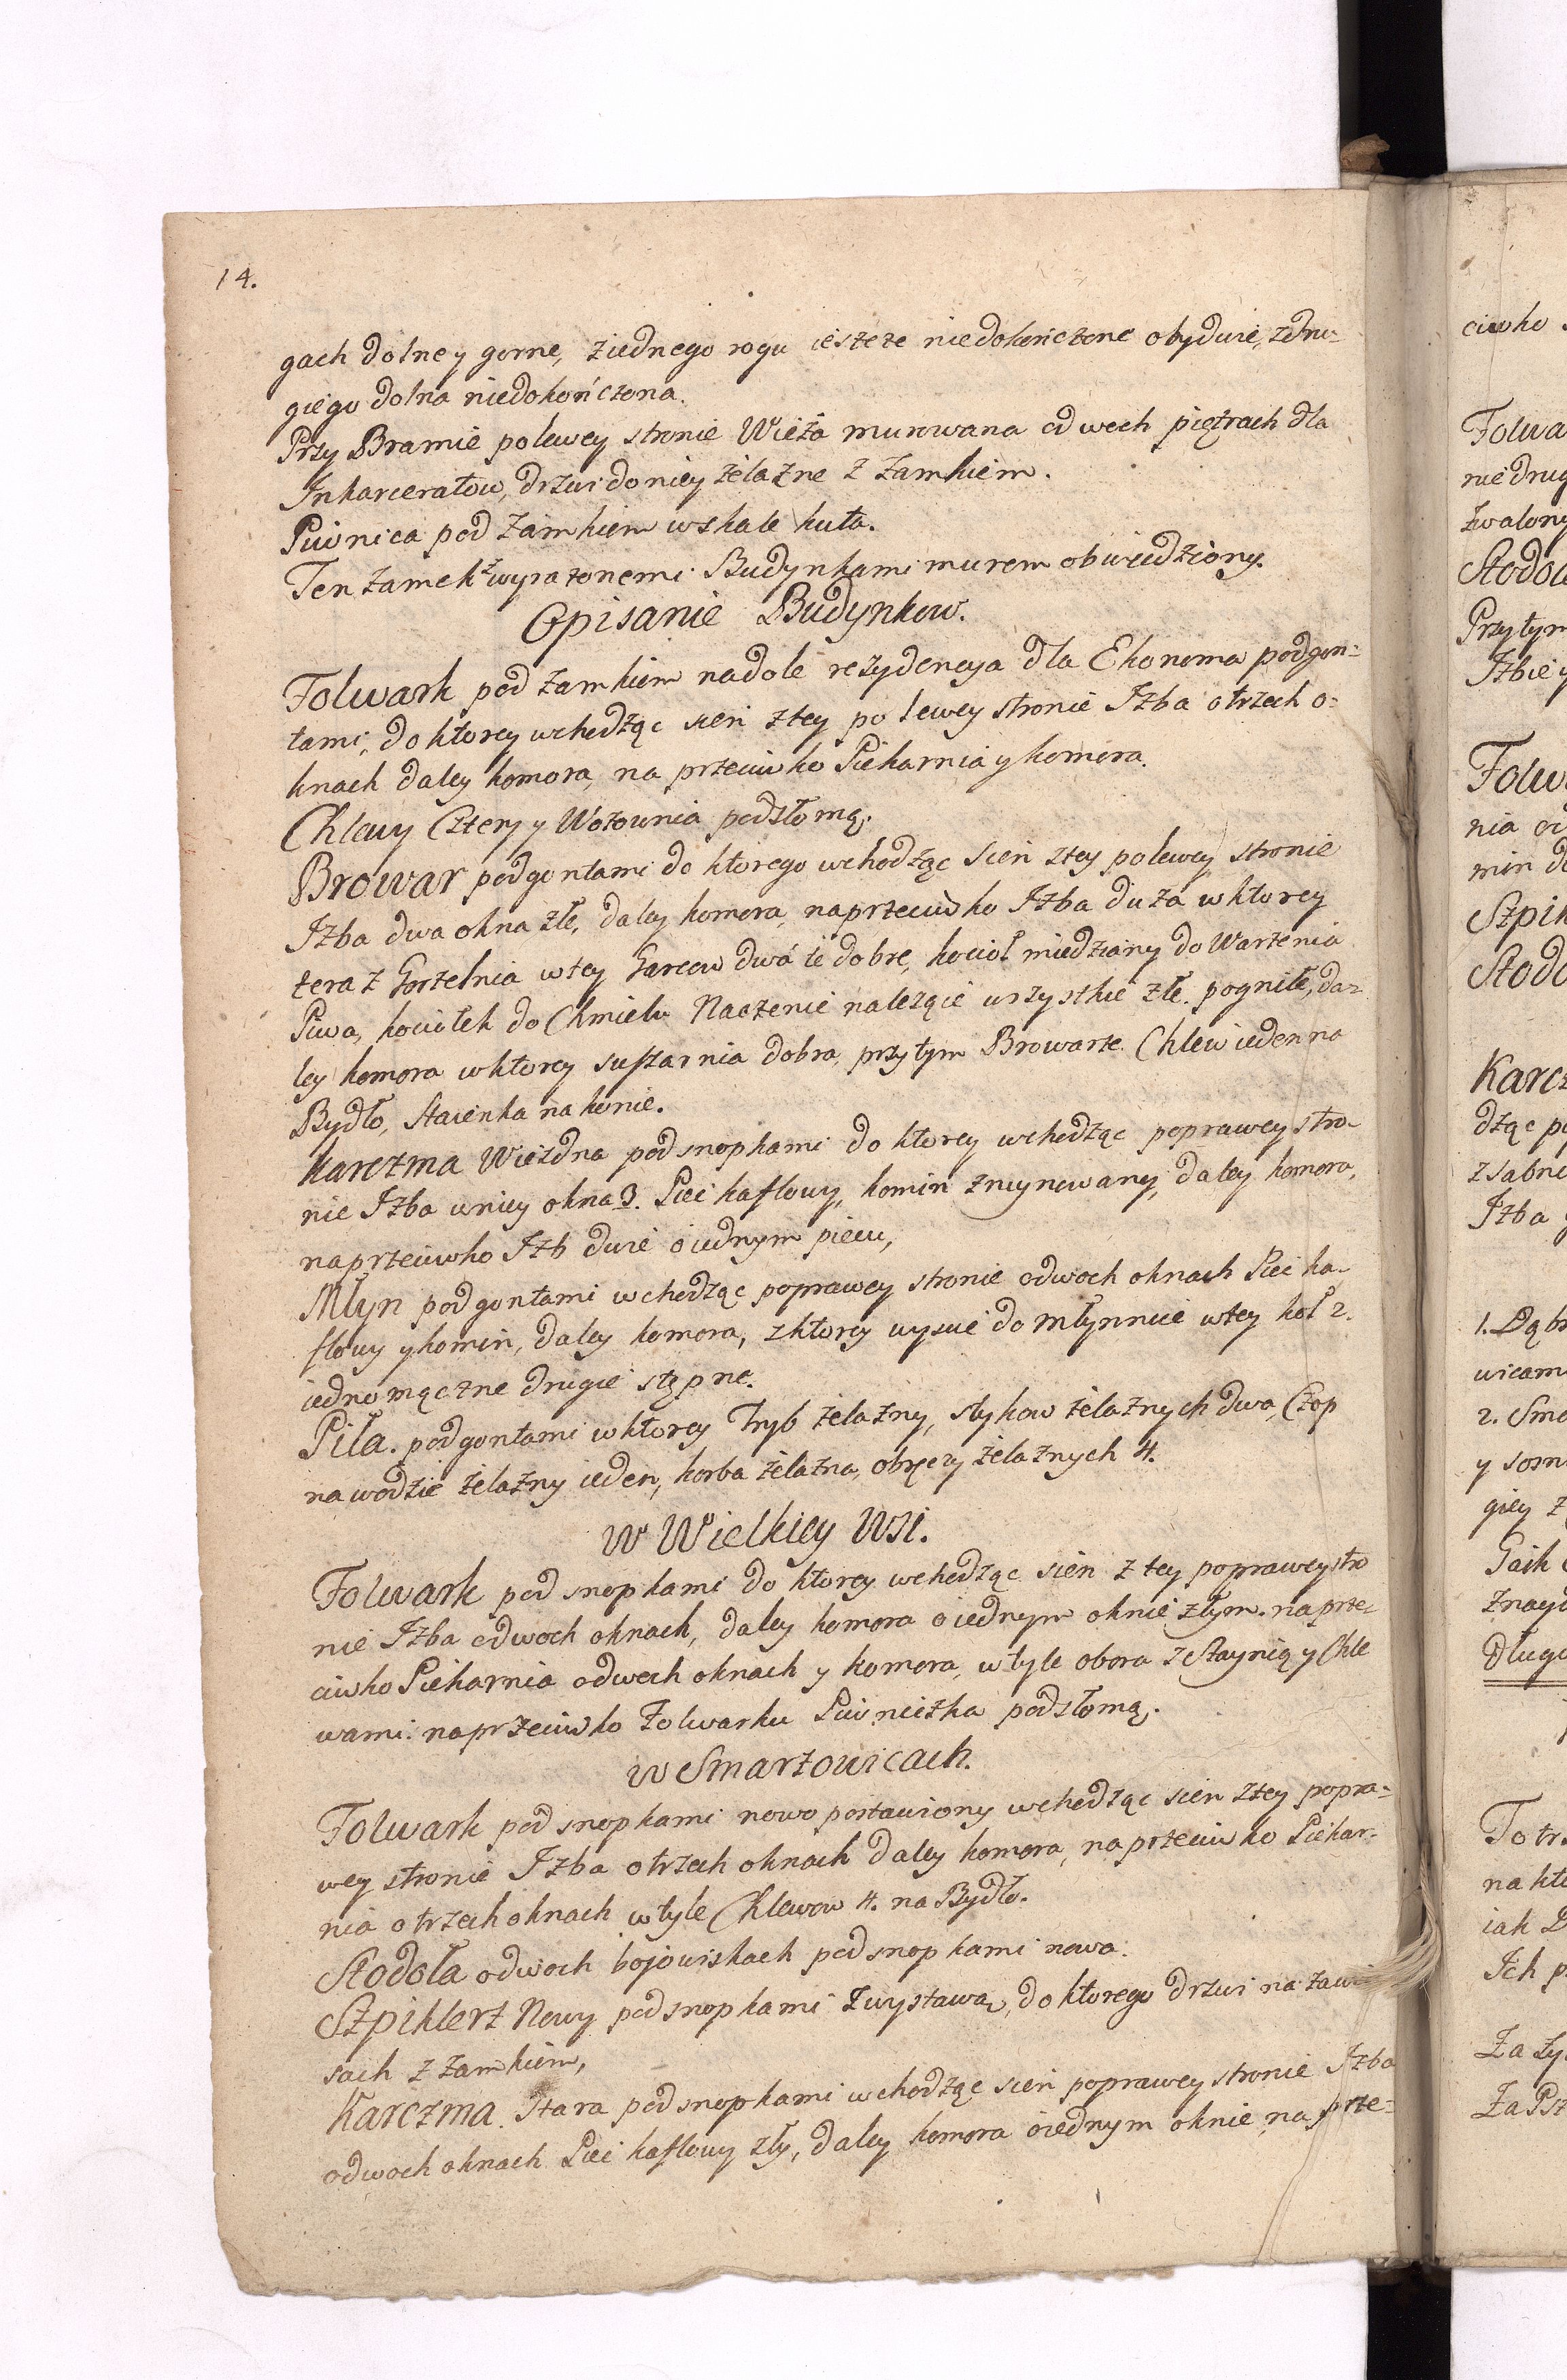 14.
gach dolne y gorne, z iednego rogu ieszcze niedokończone obydwie, z dru-
giego dolna niedokończona.
Przy Bramie po lewey stronie Wieża murowana o dwoch piętrach dla
Inkarceratow, drzwi do niey żelazne z zamkiem.
Piwnica pod Zamkiem w skale kuta.
Ten zamek z wyrazonemi Budynkami murem obwiedziony.
Opisanie Budynkow.
Folwark pod zamkiem na dole rezydencya dla Ekonoma pod gon-
tami, do ktorey wchodząc sień z tey po lewey stronie Izba o trzech o-
knach daley komora, na przeciwko Piekarnia y komora.
Chlewy Cztery y Wozownia pod słomą.
Browar pod gontami do ktorego wchodząc sień z tey po lewey stronie
Izba dwa okna złe, daley komora, naprzeciwko Izba duża w ktorey
teraz Gorzelnia w tey Garcow dwa te dobre, kocioł miedziany do Warzenia
Piwa, kociołek do Chmielu Naczenie należącie wszystkie złe pogniłe, da-
ley komora w ktorey suszarnia dobra, przy tym Browarze Chlew ieden na
Bydło, Staienka na konie.
Karczma Wiezdna pod snopkami do ktorey wchodząc po prawey stro-
nie Izba w niey okna 3. Piec kaflowy, komin zruynowany, daley komora,
naprzeciwko Izb dwie o iednym piecu,
Młyn pod gontami wchodząc po prawey stronie o dwoch oknach Piec ka-
flowy y komin, daley komora, z ktorey wyscie do młynnice w tey koł 2.
iedno mączne drugie stępne.
Piła. pod gontami w ktorey Tryb żelazny, stykow żelaznych dwa, Czop
na wodzie żelazny ieden, korba żelazna, obręczy żelaznych 4.
w Wielkiey Wsi.
Folwark pod snopkami do ktorey wchodząc sień z tey po prawey stro
nie Izba o dwoch oknach, daley komora o iednym oknie złym. na prze-
ciwko Piekarnia o dwoch oknach y komora, w tyle obora z Staynią y Chle
wami. naprzeciwko Folwarku Piwniczka pod słomą.
w Smarzowicach.
Folwark pod snopkami nowo postawiony wchodząc sień z tey po pra-
wey stronie Izba o trzech oknach daley komora, na przeciwko Piekar-
nia o trzech oknach w tyle Chlewow 4. na Bydło.
Stodoła o dwoch bojowiskach pod snopkami nowa.
Szpiklerz Nowy pod snopkami z wystawą, do ktorego drzwi na zawia
sach z zamkiem,
Karczma Stara pod snopkami wchodząc sień po prawey stronie Izba
o dwoch oknach Piec kaflowy zły, daley komora o iednym oknie na prze-